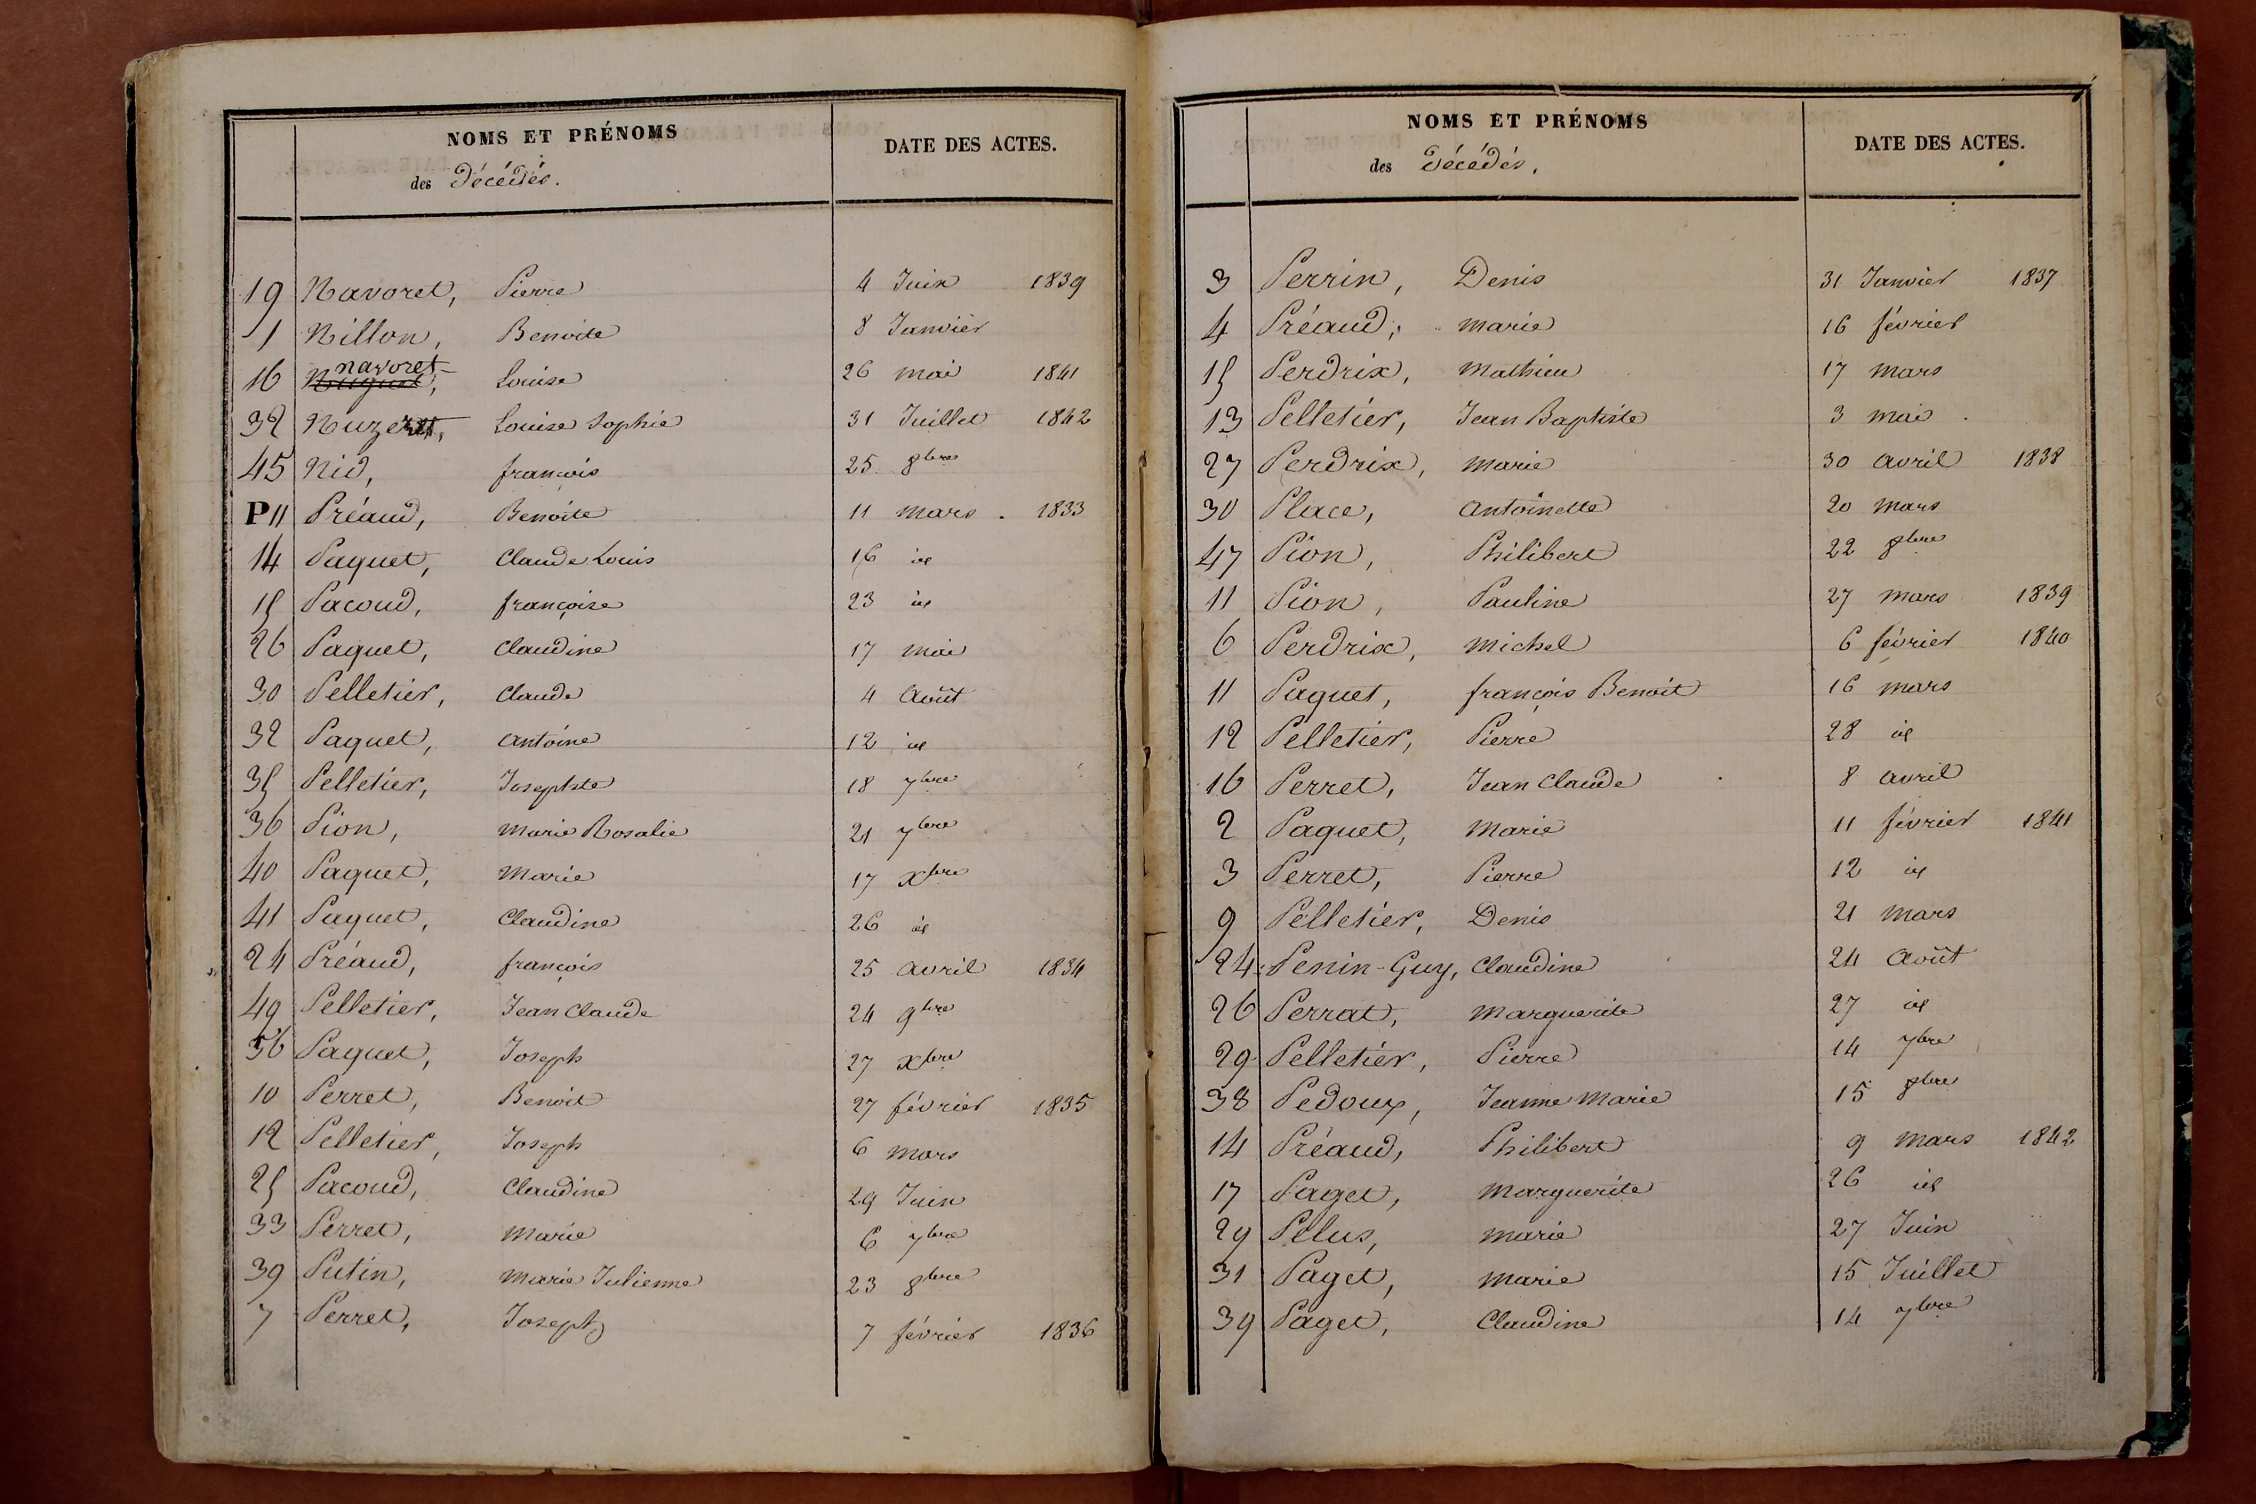 NOMS ET PRÉNOMS
des Décédés.
DATE DES ACTES.
19 Navoret, Pierre 4 Juin 1839
1 Nillon, Benoite 8 Janvier
navoret
16 Louise 26 mai 1841
32 Louise Sophie 31 Juillet 1842
45 Nid, françois 25 8bre
P 11 Préaud, Benoite 11 mars . 1833
14 Paquet, Claude Louis 16 id
15 Pacoud, françoise 23 id
26 Paquet, Claudine 17 mai
30 Pelletier, Claude 4 Août
32 Paquet, Antoine 12 id
35 Pelletier, Josephte 18 7bre
36 Pion, Marie Rosalie 21 7bre
40 Paquet, Marie 17 Xbre
41 Paquet, Claudine 26 id
24 Préaud, françois 25 avril 1834
49 Pelletier, Jean Claude 24 9bre
56 Paquet, Joseph 27 Xbre
10 Perret, Benoit 27 février 1835
12 Pelletier, Joseph 6 mars
25 Pacoud, Claudine 29 Juin
33 Perret, Marie 6 7bre
39 Putin, Marie Julienne 23 8bre
7 Perret, Joseph 7 février 1836
NOMS ET PRÉNOMS
des Décédés,
DATE DES ACTES.
3 Perrin, Denis 31 Janvier 1837
4 Préaud, marie 16 février
15 Perdrix, Mathieu 17 mars
13 Pelletier, Jean Baptiste 3 mai .
27 Perdrix, Marie 30 avril 1838
30 Place, Antoinette 20 mars
47 Pion, Philibert 22 8bre
11 Pion, Pauline 27 mars 1839
6 Perdrix, Michel 6 février 1840
11 Paquet, françois Benoit 16 mars
12 Pelletier, Pierre 28 id
16 Perret, Jean Claude 8 avril
2 Paquet, Marie 11 février 1841
3 Perret, Pierre 12 id
9 Pelletier, Denis 21 mars
24 Penin-Guy, Claudine 24 Août
26 Perrat, Marguerite 27 id
29 Pelletier, Pierre 14 7bre
38 Pedoux, Jeanne Marie 15 8bre
14 Préaud, Philibert 9 mars 1842
17 Paget, Marguerite 26 id
29 Pelus, marie 27 Juin
31 Paget, Marie 15 Juillet
39 Paget, Claudine 14 7bre